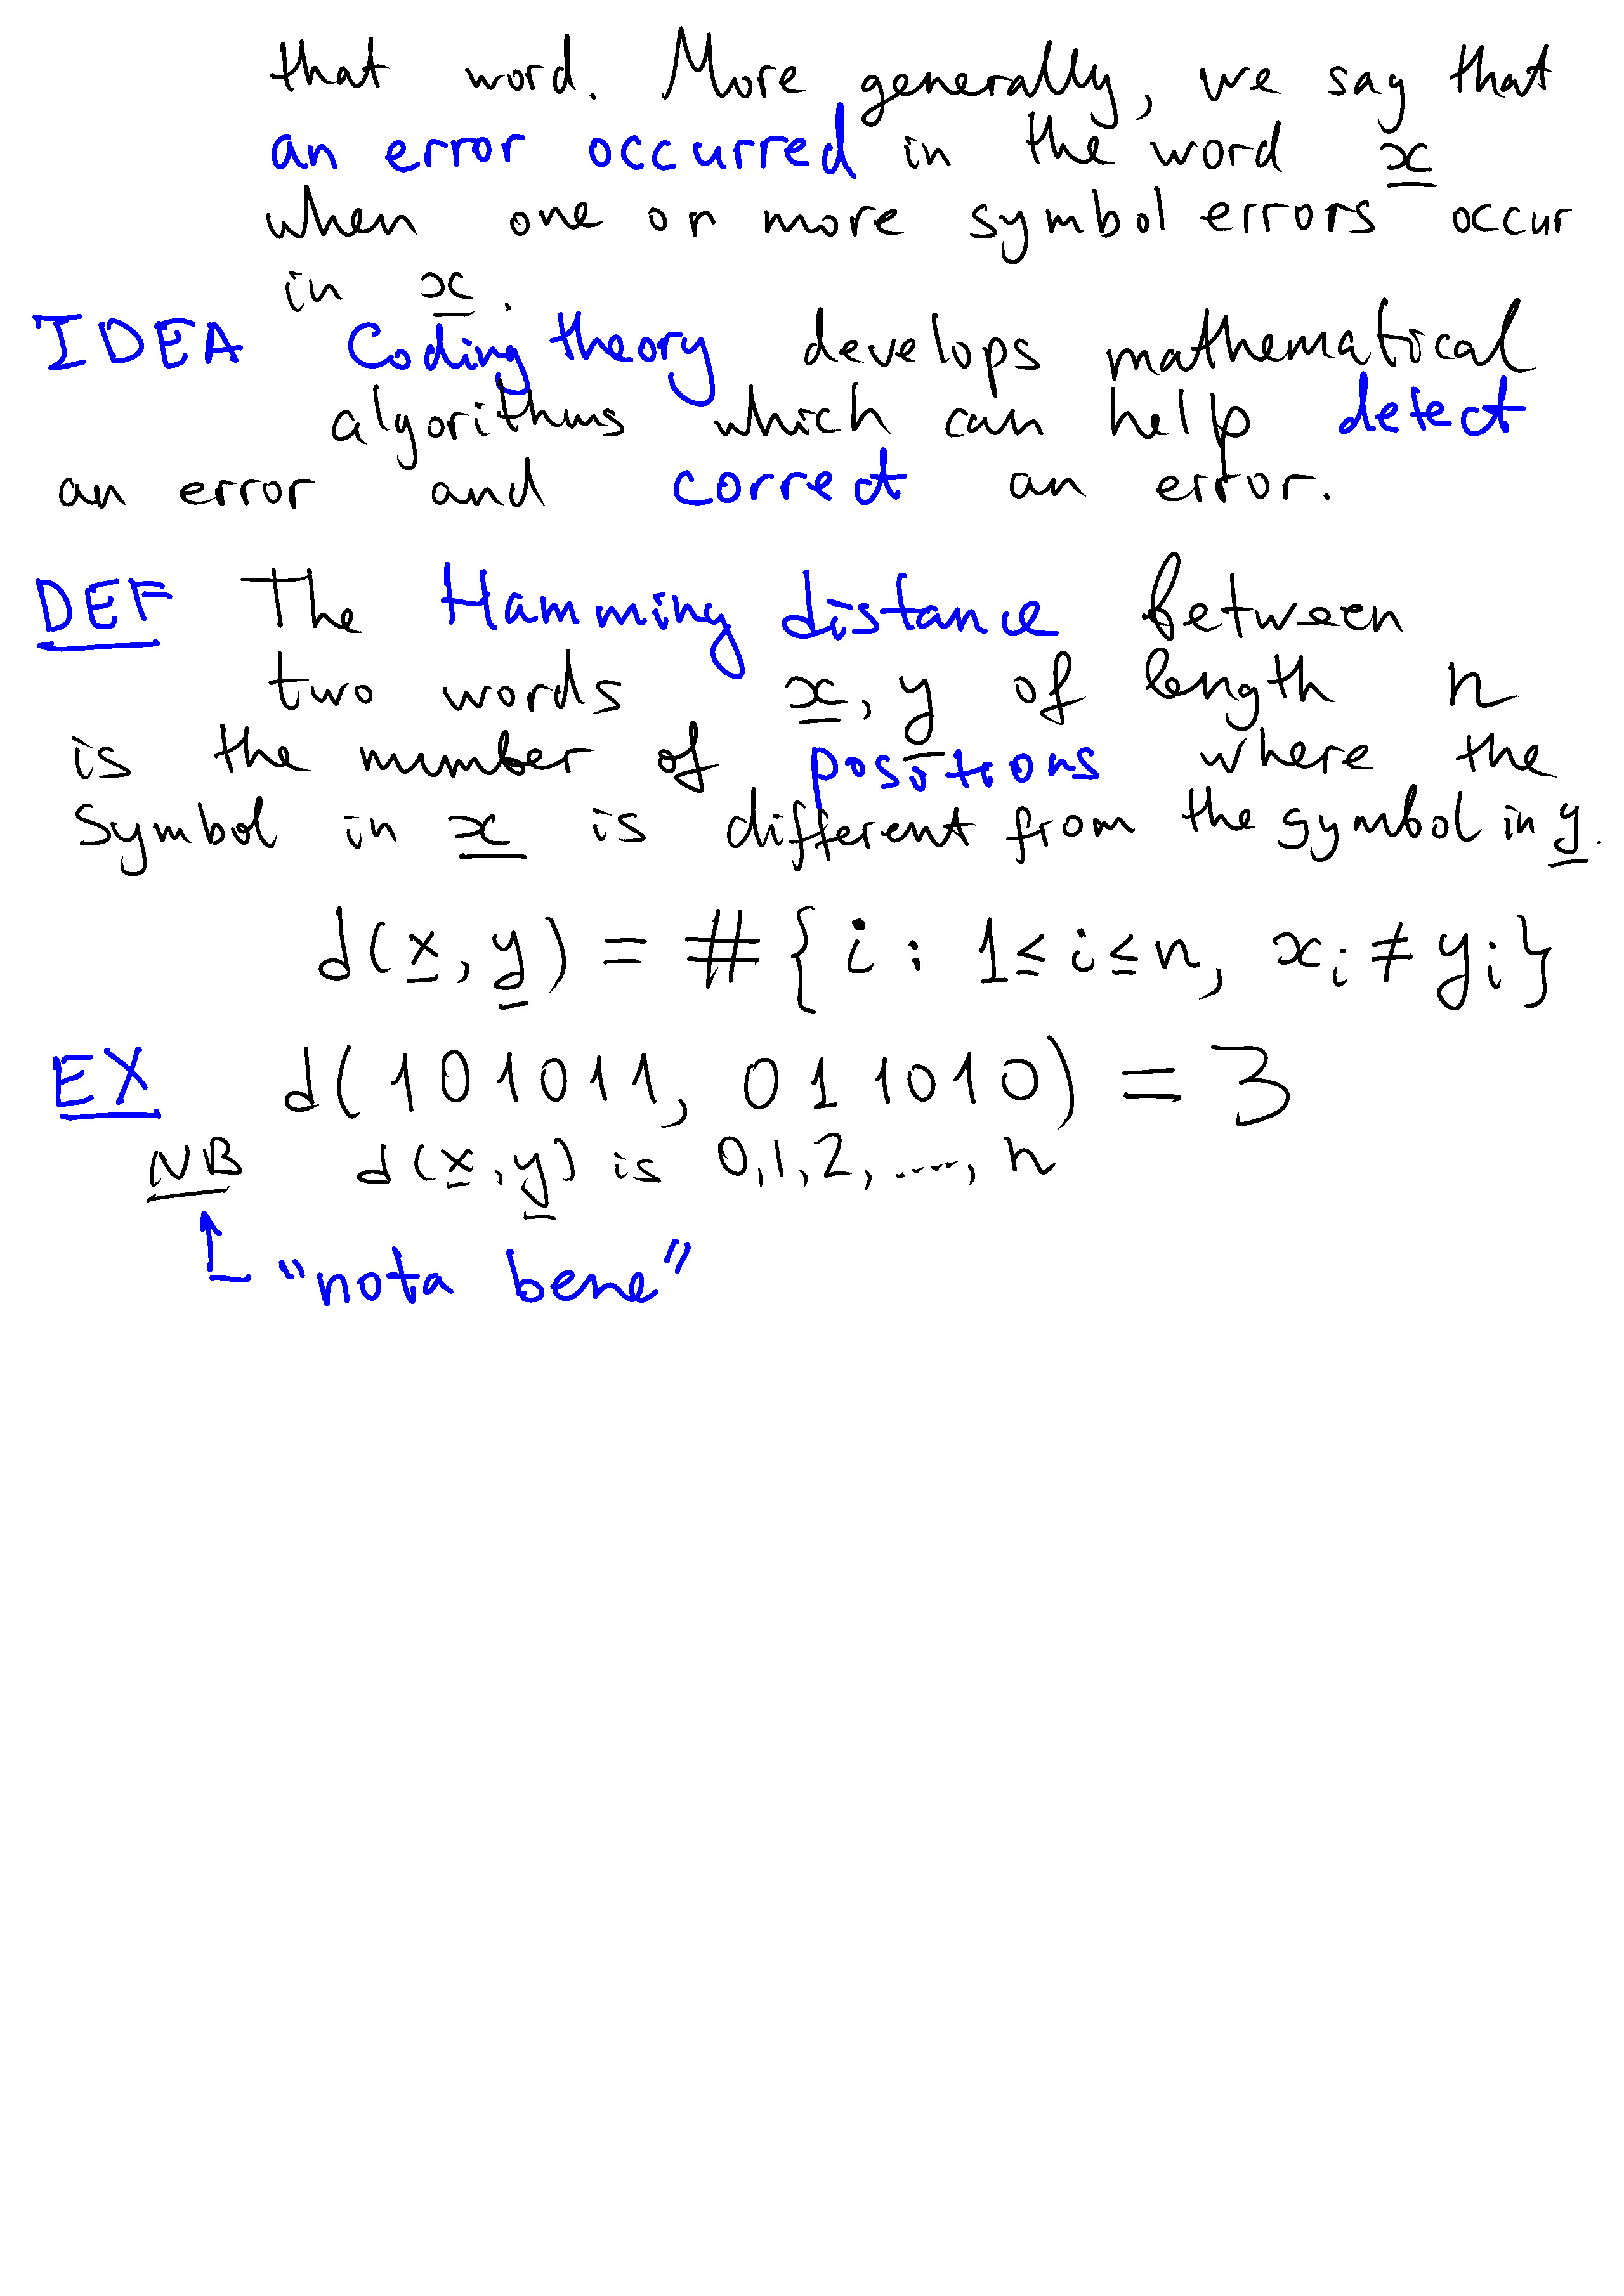 that word. More generally, we say that
an error occurred in the word x
when one or more symbol errors occur
in x.
IDEA Coding theory develops mathematical
algorithms which can help detect
an error and correct an error.
DEF The Hamming distance between
two words x, y of length n
is the number of positions where the
symbol in x is different from the symbol in y.
d(x, y) = # { i : 1 ≤ i ≤ n, xᵢ ≠ yᵢ }
EX d(101011, 011010) = 3
NB d(x, y) is 0, 1, 2, ...., n
"nota bene"